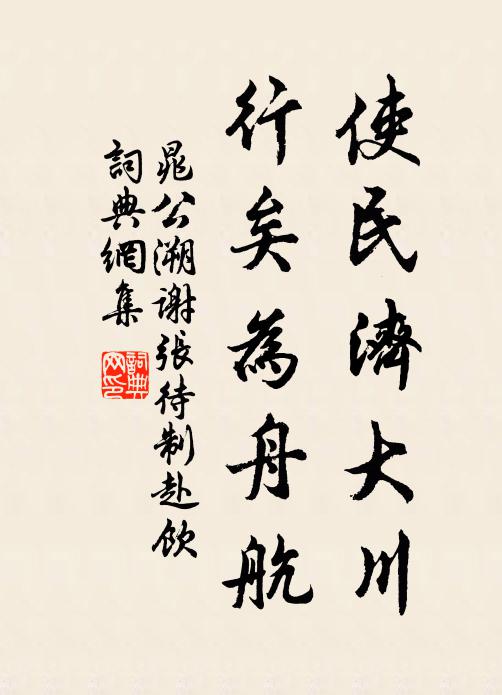 使民濟大川
行矣為舟航
晁公溯谢張待制赴飲
詞典網集
詞典网印